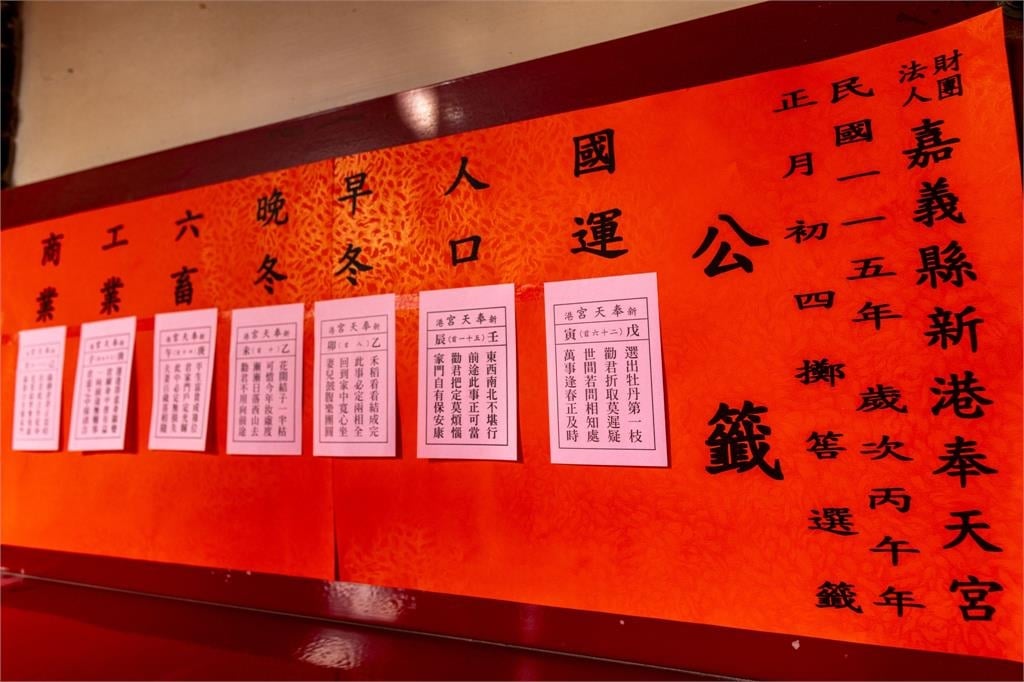 財團
法人
嘉義縣新港奉天宮
民國一一五年歲次丙午年
正月初四擲筶選籤
公籤
國運
新港奉天宮
戊寅(二十六首)
選出牡丹第一枝
勸君折取莫遲疑
世間若問相知處
萬事逢春正及時
人口
新港奉天宮
壬辰(五十一首)
東西南北不堪行
前途此事正可當
勸君把定莫煩惱
家門自有保安康
早冬
新港奉天宮
乙卯(八首)
禾稻看看結成完
此事必定兩相全
回到家中寬心坐
妻兒鼓腹樂團圓
晚冬
新港奉天宮
乙未(十首)
花開結子一半枯
可惜今年汝虛度
漸漸日落西山去
勸君不用向前途
六畜
新港奉天宮
庚午
平生富貴成祿位
君家門戶定光輝
此中必定無損失
夫妻百歲喜相隨
工業
商業